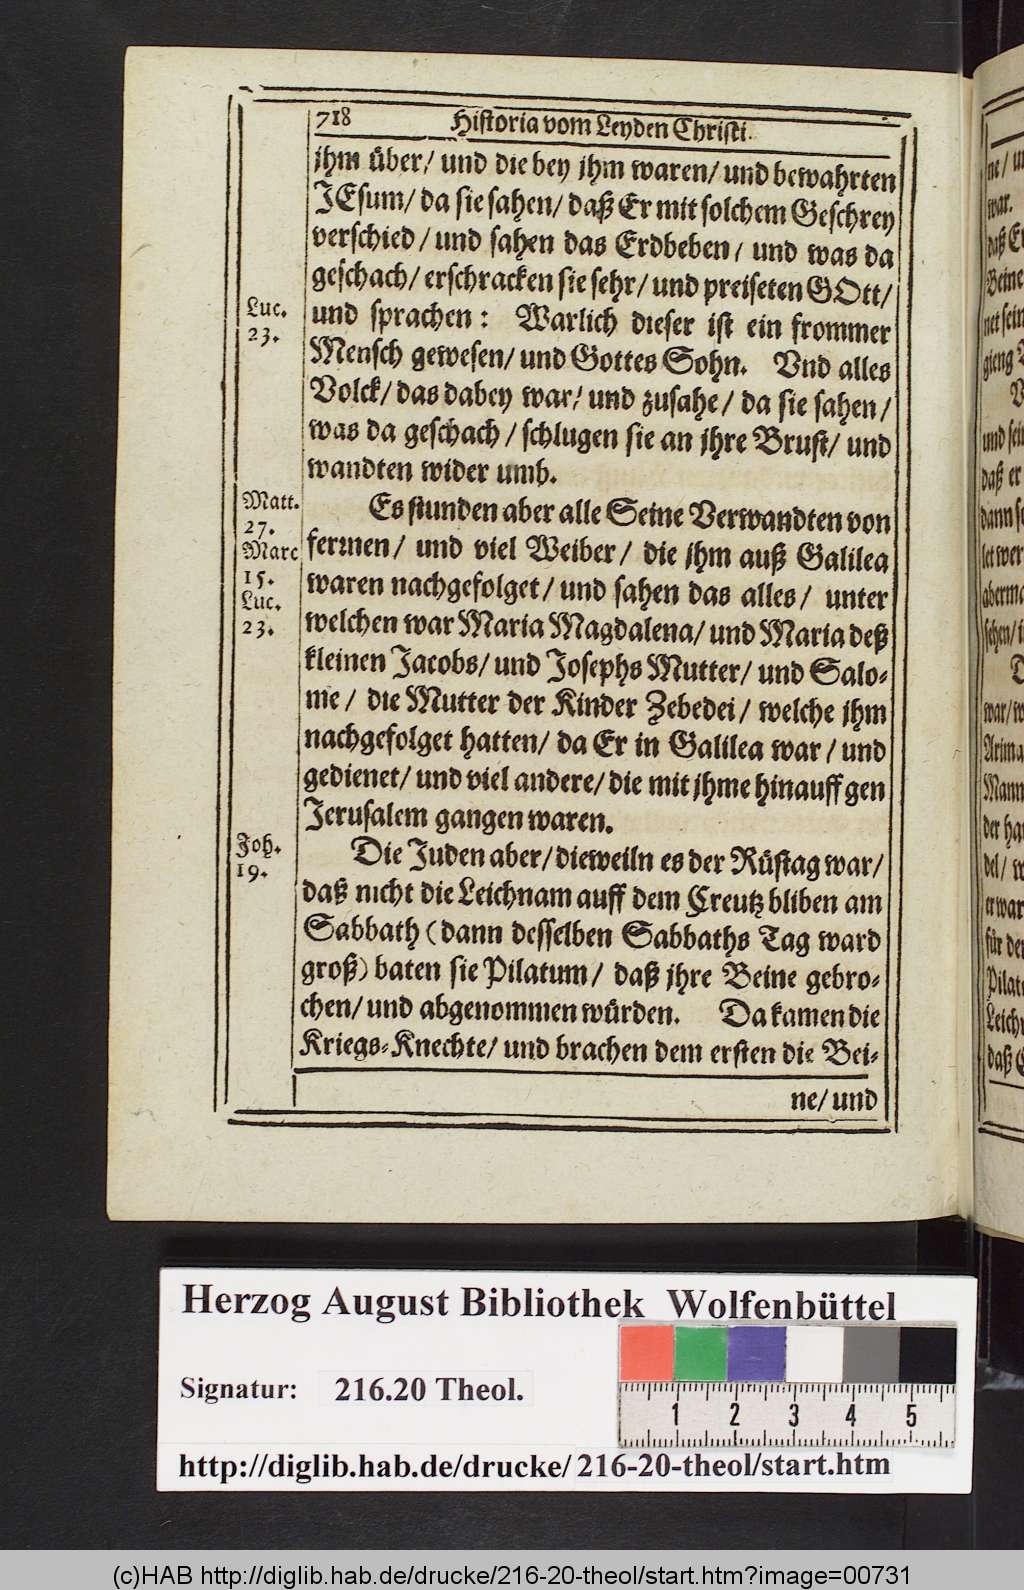 718 Historia vom Leyden Christi.
jhm über/ und die bey jhm waren/ und bewahrten
JEsum/ da sie sahen/ daß Er mit solchem Geschrey
verschied/ und sahen das Erdbeben/ und was da
geschach/ erschracken sie sehr/ und preiseten GOtt/
und sprachen: Warlich dieser ist ein frommer
Mensch gewesen/ und Gottes Sohn. Vnd alles
Volck/ das dabey war/ und zusahe/ da sie sahen/
was da geschach/ schlugen sie an jhre Brust/ und
wandten wider umb.
Luc.
23.
Es stunden aber alle Seine Verwandten von
fermen/ und viel Weiber/ die jhm auß Galilea
waren nachgefolget/ und sahen das alles/ unter
welchen war Maria Magdalena/ und Maria deß
kleinen Jacobs/ und Josephs Mutter/ und Salo-
me/ die Mutter der Kinder Zebedei/ welche jhm
nachgefolget hatten/ da Er in Galilea war/ und
gedienet/ und viel andere/ die mit jhme hinauff gen
Jerusalem gangen waren.
Matt.
27.
Marc
15.
Luc.
23.
Die Juden aber/ dieweiln es der Rüstag war/
daß nicht die Leichnam auff dem Creutz bliben am
Sabbath (dann desselben Sabbaths Tag ward
groß) baten sie Pilatum/ daß jhre Beine gebro-
chen/ und abgenommen würden. Da kamen die
Kriegs-Knechte/ und brachen dem ersten die Bei-
ne/ und
Joh.
19.
Herzog August Bibliothek Wolfenbüttel
Signatur: 216.20 Theol.
1 2 3 4 5
http://diglib.hab.de/drucke/216-20-theol/start.htm
(c)HAB http://diglib.hab.de/drucke/216-20-theol/start.htm?image=00731